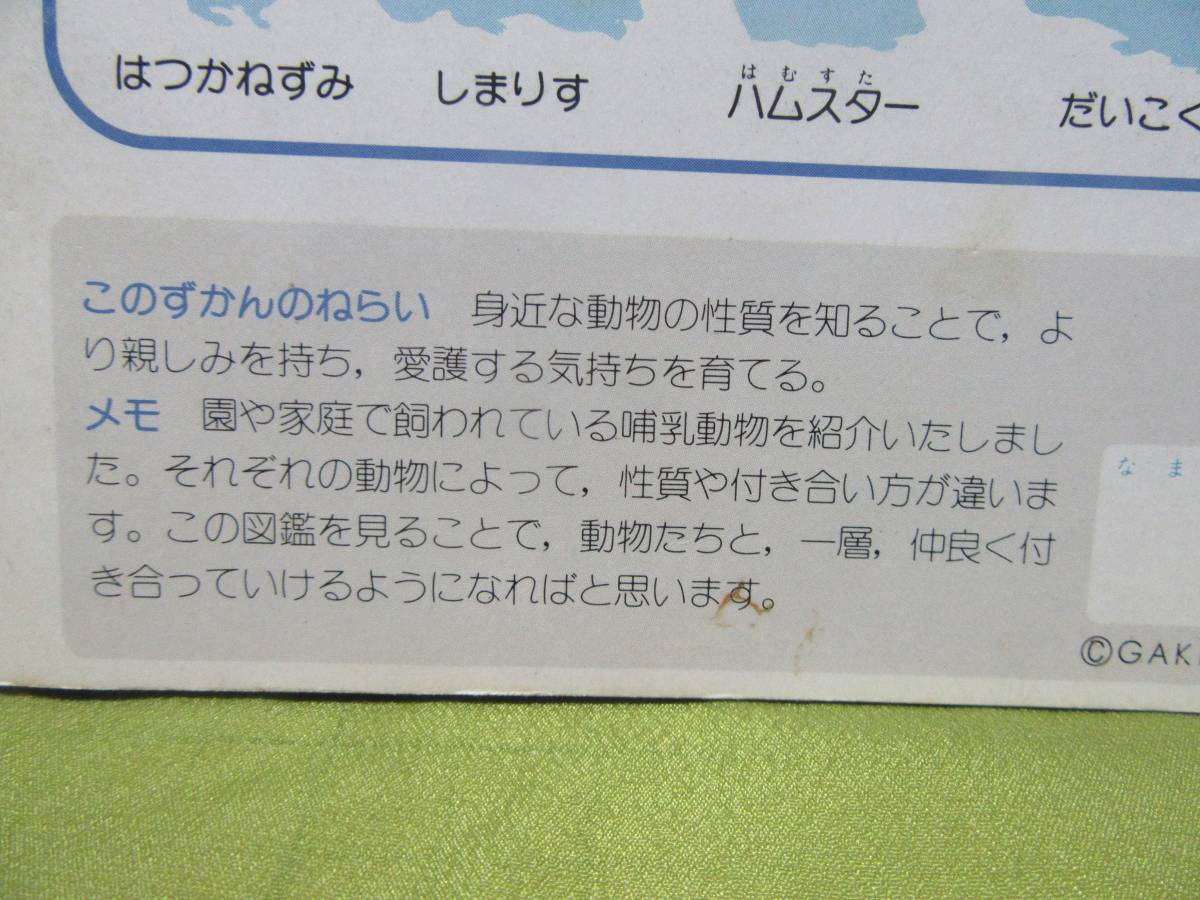 はつかねずみ しまりす ハムスター だいこく
はむすた
このずかんのねらい 身近な動物の性質を知ることで，よ
り親しみを持ち，愛護する気持ちを育てる。
メモ 園や家庭で飼われている哺乳動物を紹介いたしまし
た。それぞれの動物によって，性質や付き合い方が違いま
す。この図鑑を見ることで，動物たちと，一層，仲良く付
き合っていけるようになればと思います。
なま
©GAK